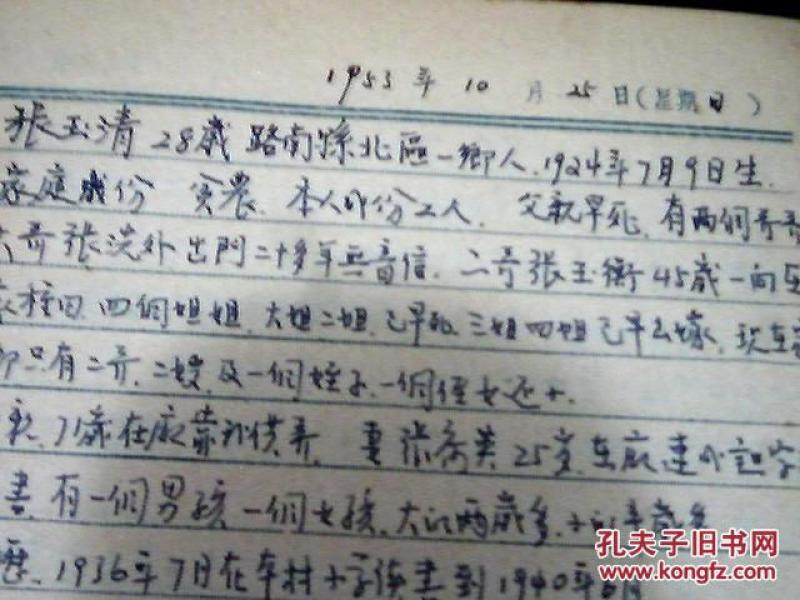 1953年10月25日(星期日)
張玉清 28歲 路南縣北區一鄉人.1924年7月9日生.
家庭成份 贫農. 本人成份工人. 父親早死,有兩個哥哥
大哥張洪外出門二十多年無音信. 二哥張玉衡45歲一向
種田 四個姐姐. 大姐二姐已早死 三姐四姐已早出嫁. 現在家
只有二哥.二嫂.及一個姪子.一個侄女还小.
71歲在廠靠我供养. 妻張秀英25岁在廠連小識字
書. 有一個男孩一個女孩.大的两歲多.小的
歷.1936年7月在本村小学读書到1940年6月
孔夫子旧书网
www.kongfz.com